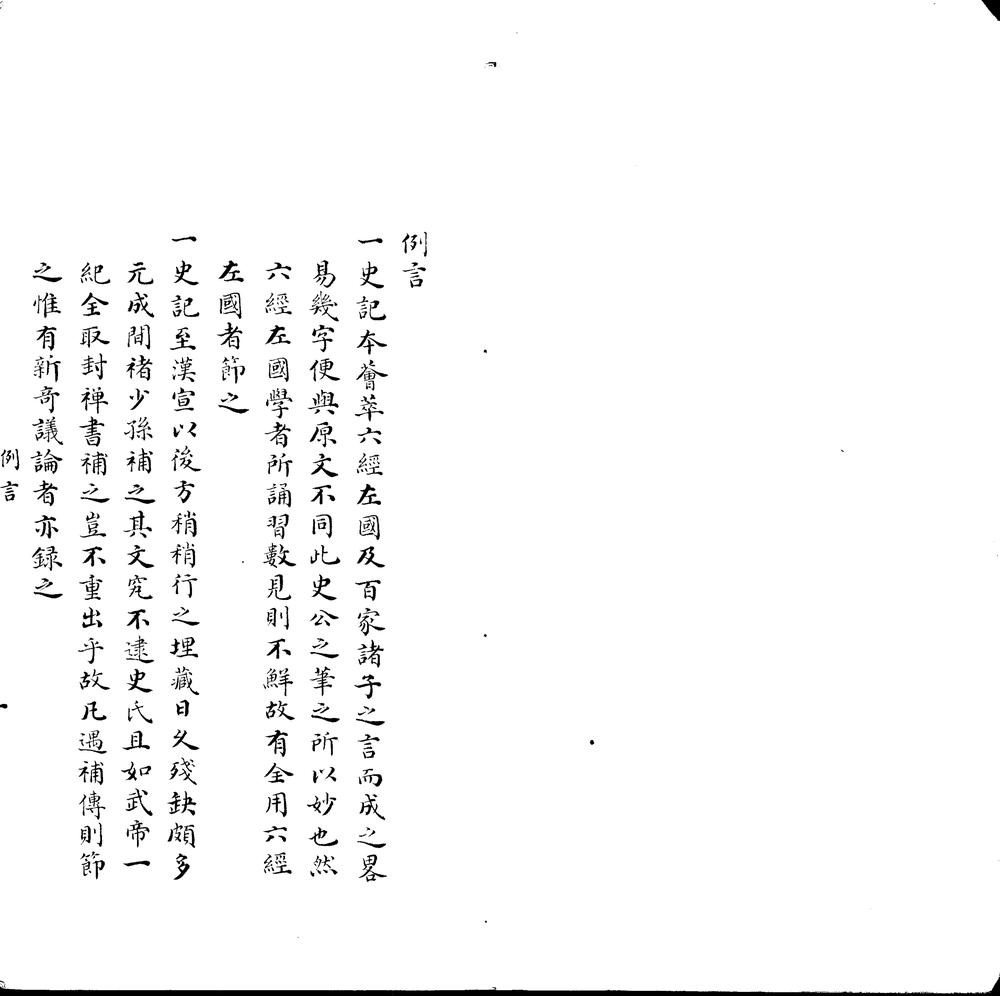 例言
一史記夲薈萃六經左國及百家諸子之言而成之畧
易幾字便與原文不同此史公之筆之所以妙也然
六經左國學者所誦習數見則不鮮故有全用六經
左國者節之
一史記至漢宣以後方稍稍行之埋藏日久殘缺頗多
元成間褚少孫補之其文究不逮史氏且如武帝一
紀全取封禅書補之豈不重出乎故凡遇補傳則節
之惟有新奇議論者亦録之
例言